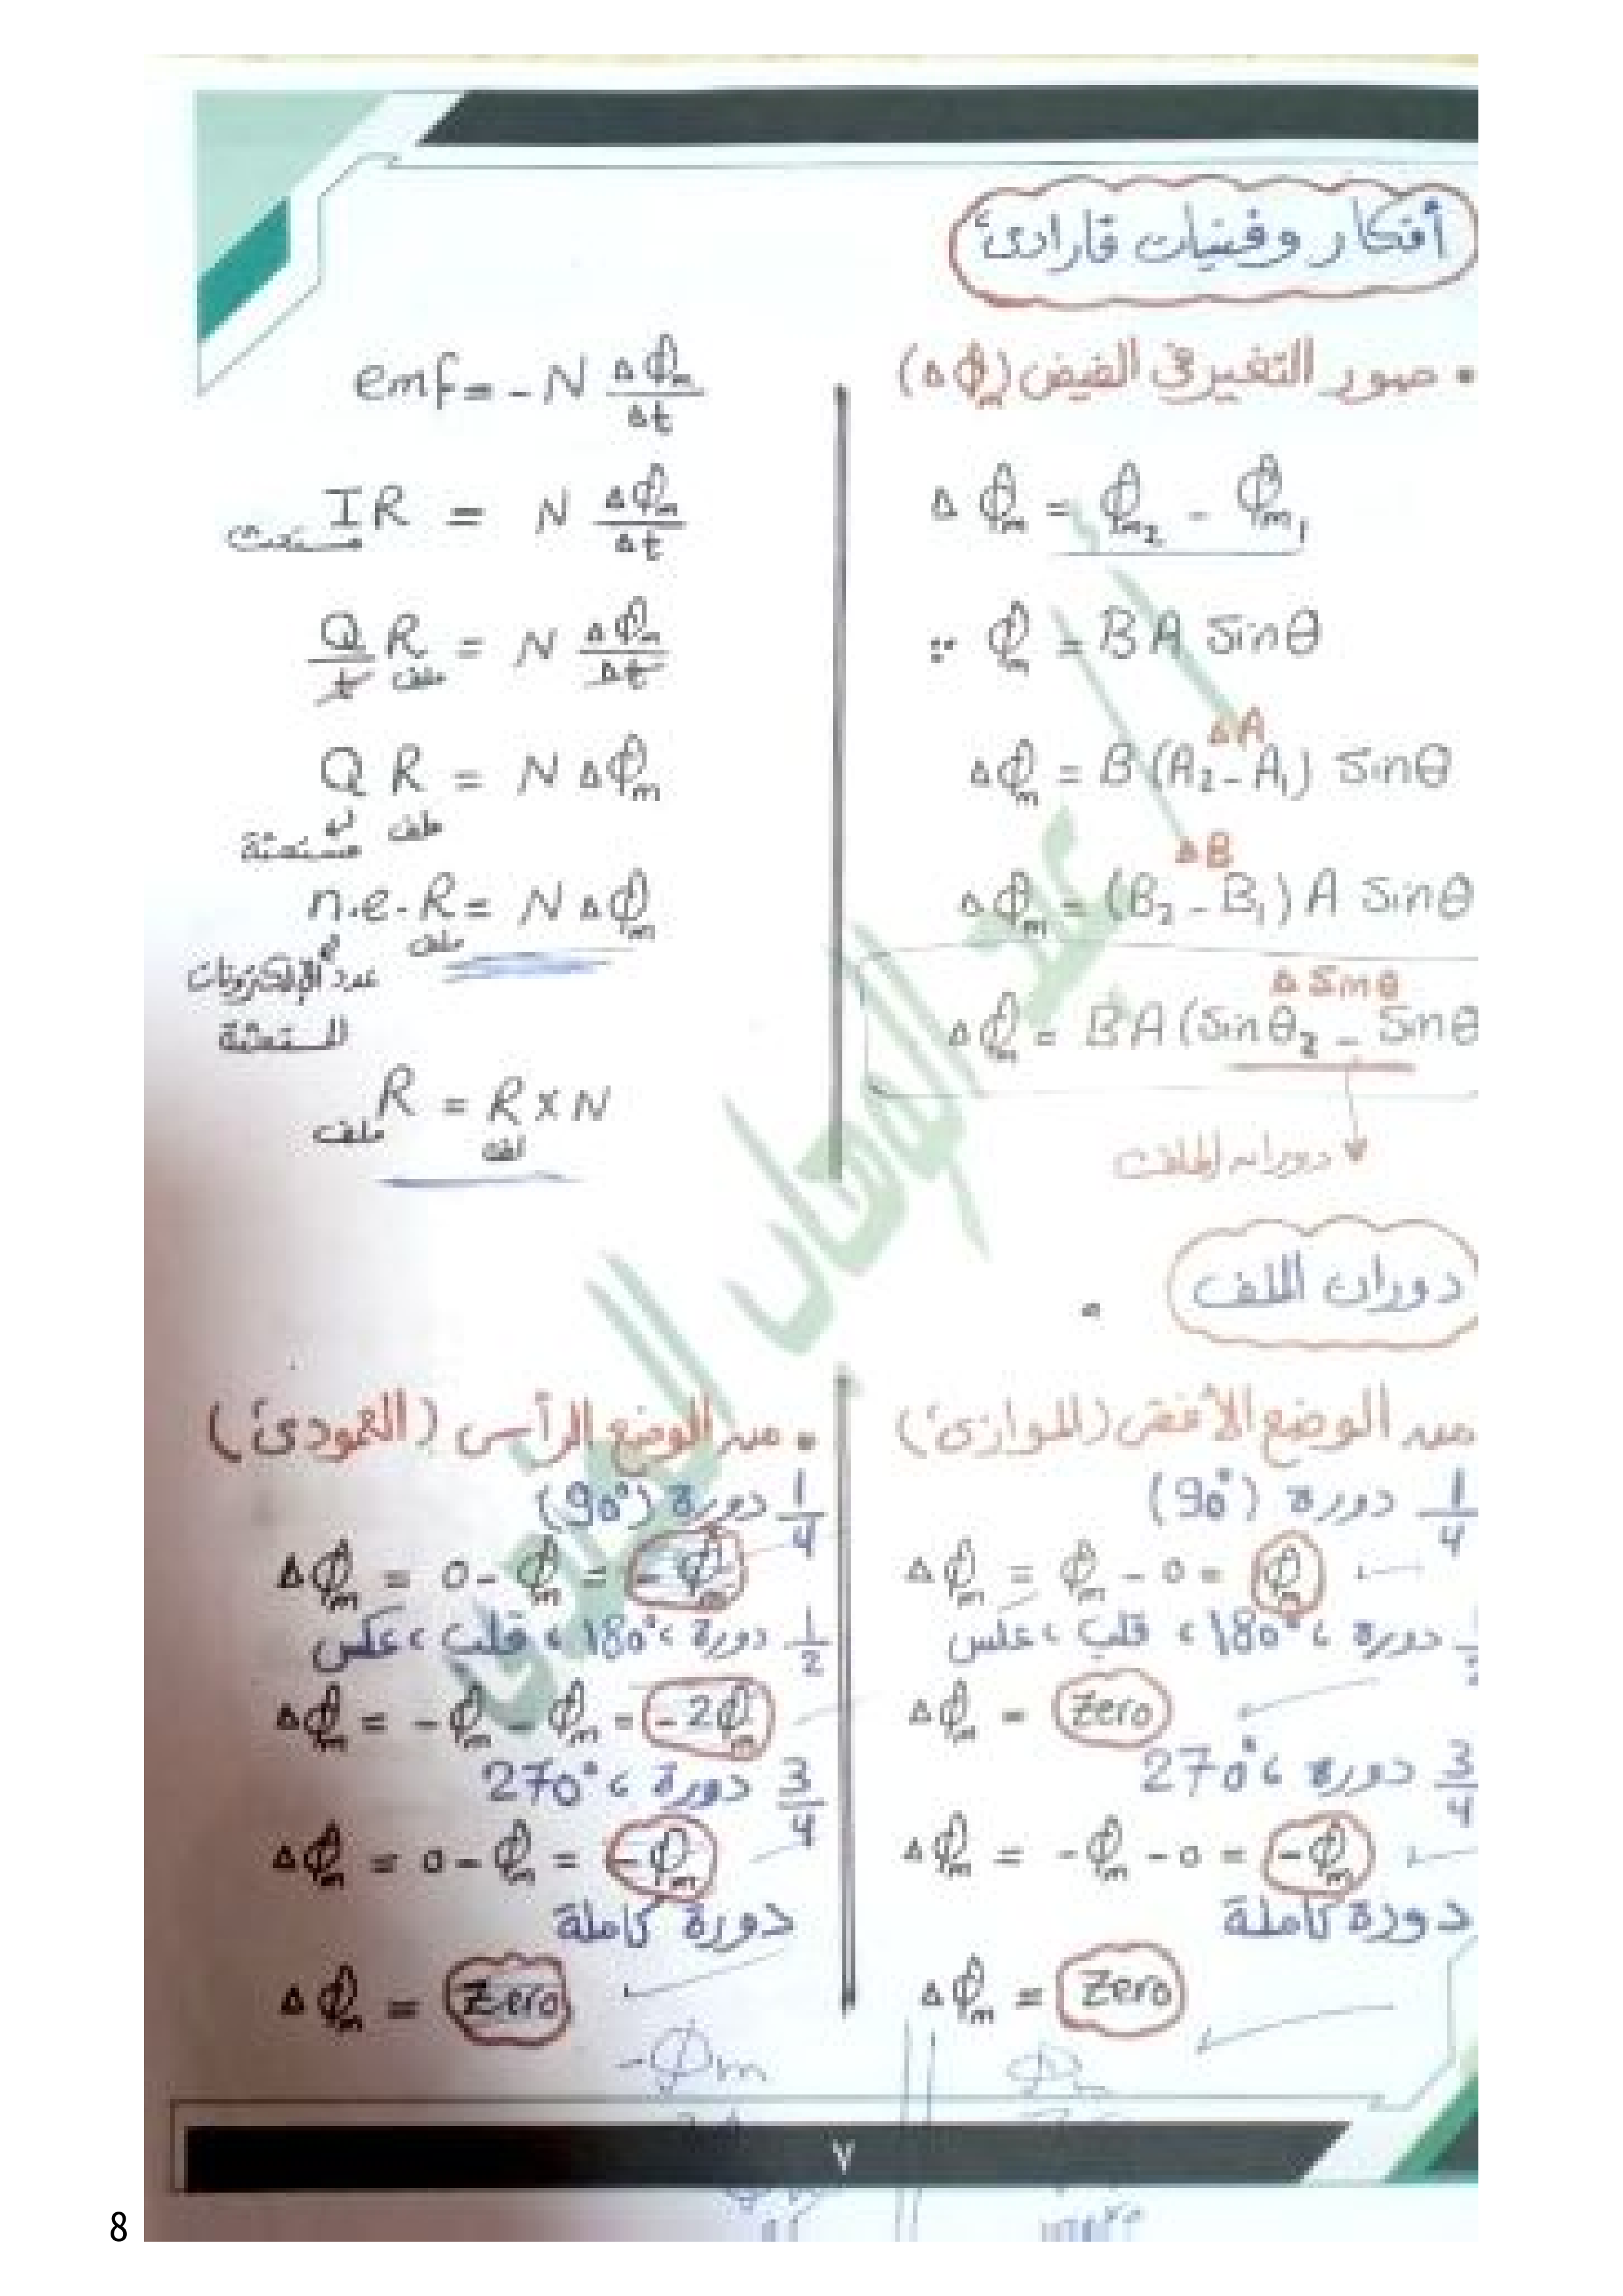 أفكار وفنيات فارادى
• صور التغير فى الفيض (Δϕm)
Δϕm = ϕm2 - ϕm1
∵ ϕm = BA Sinθ
ΔA
Δϕm = B(A2-A1) Sinθ
ΔB
Δϕm = (B2-B1) A Sinθ
Δ Sinθ
Δϕm = BA (Sinθ2 - Sinθ
دوران الملف
emf = - N Δϕm/Δt
IR = N Δϕm/Δt
مستحث
Q/t R = N Δϕm/Δt
ملف
Q R = N Δϕm
مستحثة ملف
n.e.R = N Δϕm
ملف
عدد الإلكترونات
المستحثة
R = R x N
ملف لفة
دوران الملف
من الوضع الأفقى (الموازى)
1/4 دورة (90°)
Δϕm = ϕm - 0 = ϕm
دورة ، 180° ، قلب ، عكس
Δϕm = Zero
3/4 دورة ، 270°
Δϕm = -ϕm - 0 = -ϕm
دورة كاملة
Δϕm = Zero
• من الوضع الرأسى (العمودى)
1/4 دورة (90°)
Δϕm = 0 - ϕm = -ϕm
1/2 دورة ، 180° ، قلب ، عكس
Δϕm = -ϕm - ϕm = -2ϕm
3/4 دورة ، 270°
Δϕm = 0 - ϕm = -ϕm
دورة كاملة
Δϕm = Zero
-ϕm
٧
8